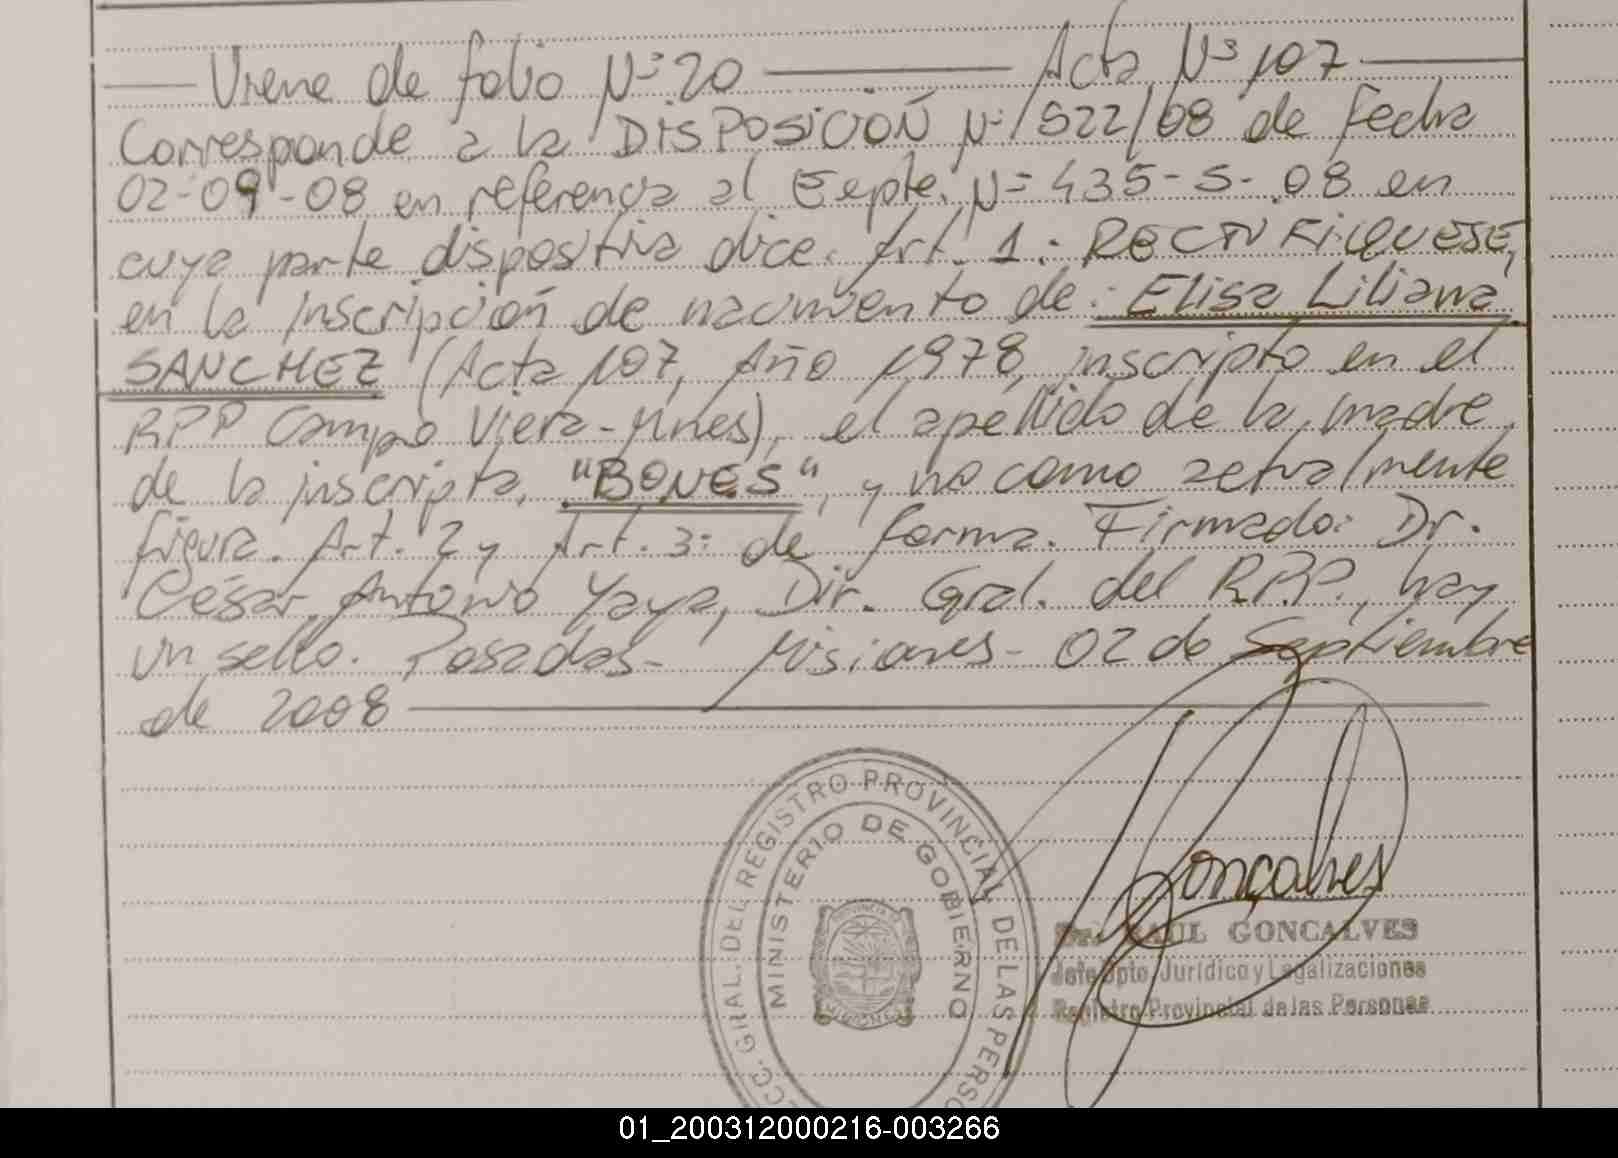 Viene de folio Nº 20 — Acta Nº 107
Corresponde a la DISPOSICIÓN Nº 1522/08 de Fecha
02-09-08 en referencia al Expte. Nº 435-S-08 en
cuya parte dispositiva dice. Art. 1: RECTIFIQUESE,
en la inscripción de nacimiento de: Elisa Liliana
SANCHEZ (Acta 107, Año 1978, inscripto en el
RPP Campo Viera-Mnes), el apellido de la madre
de la inscripta, "BONES", y no como actualmente
figura. Art. 2 y Art. 3: de forma. Firmado: Dr.
César Antonio Yaya, Dir. Gral. del R.P.P., hay
un sello. Posadas- Misiones- 02 de Septiembre
de 2008
CC. GRAL. DEL REGISTRO PROVINCIAL DE LAS PERSO
MINISTERIO DE GOBIERNO
PROVINCIA DE
MISIONES
Goncalves
Dr. RAUL GONCALVES
Jefe Dpto. Jurídico y Legalizaciones
Registro Provincial de las Personas
01_200312000216-003266